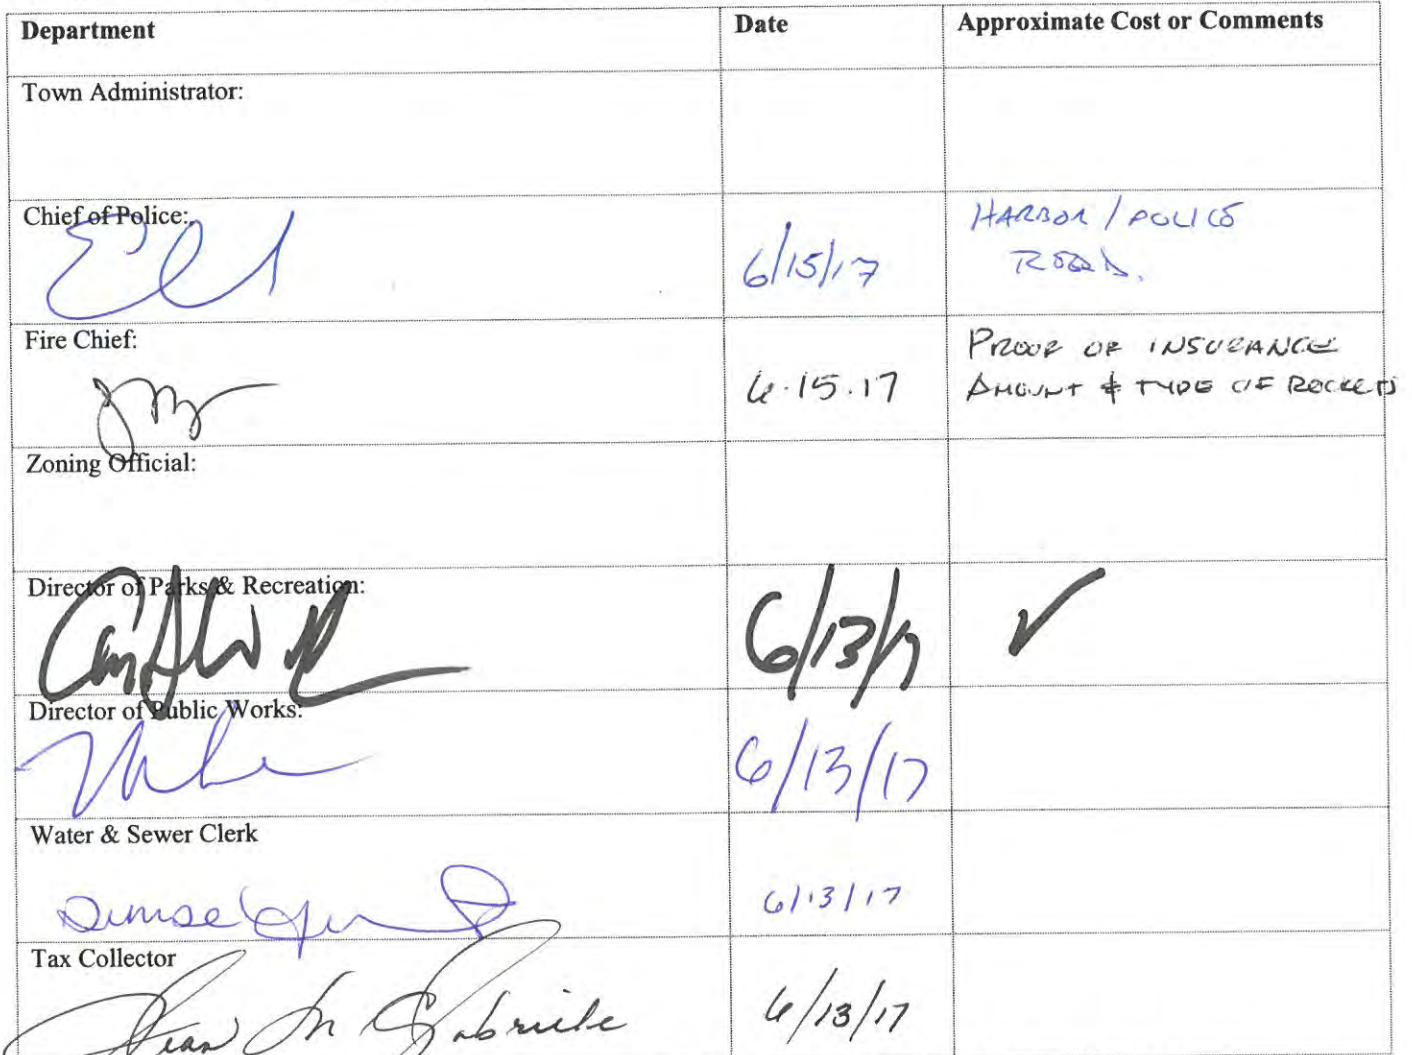 Department Date Approximate Cost or Comments
Town Administrator:
Chief of Police:
6/15/17
HARBOR / POLICE
Fire Chief:
6.15.17
PROOF OF INSURANCE
AMOUNT & TYPE OF ROCKETS
Zoning Official:
Director of Parks & Recreation:
6/13/17 ✓
Director of Public Works:
6/13/17
Water & Sewer Clerk
Denise
6/13/17
Tax Collector
Gabriele
6/13/17